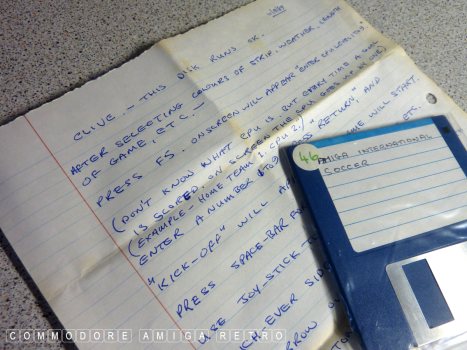 CLIVE. - THIS DISK RUNS OK.
AFTER SELECTING COLOURS OF STRIP, WEATHER, LENGTH
OF GAME, ETC. -
PRESS F5. ON SCREEN WILL APPEAR "ENTER CPU LEVEL (1 TO 9)"
(DON'T KNOW WHAT CPU IS, BUT EVERY TIME A GOAL
IS SCORED, ON SCREEN THE CPU GOES UP BY ONE)
(EXAMPLE - HOME TEAM 1, CPU 2.)
ENTER A NUMBER 1 TO 9 PRESS "RETURN," AND
"KICK-OFF" WILL GAME WILL START.
PRESS SPACE-BAR ETC.
USE JOY-STICK
EVER SIDE
ARROW
46
AMIGA INTERNATIONAL
SOCCER
COMMODORE AMIGA RETRO